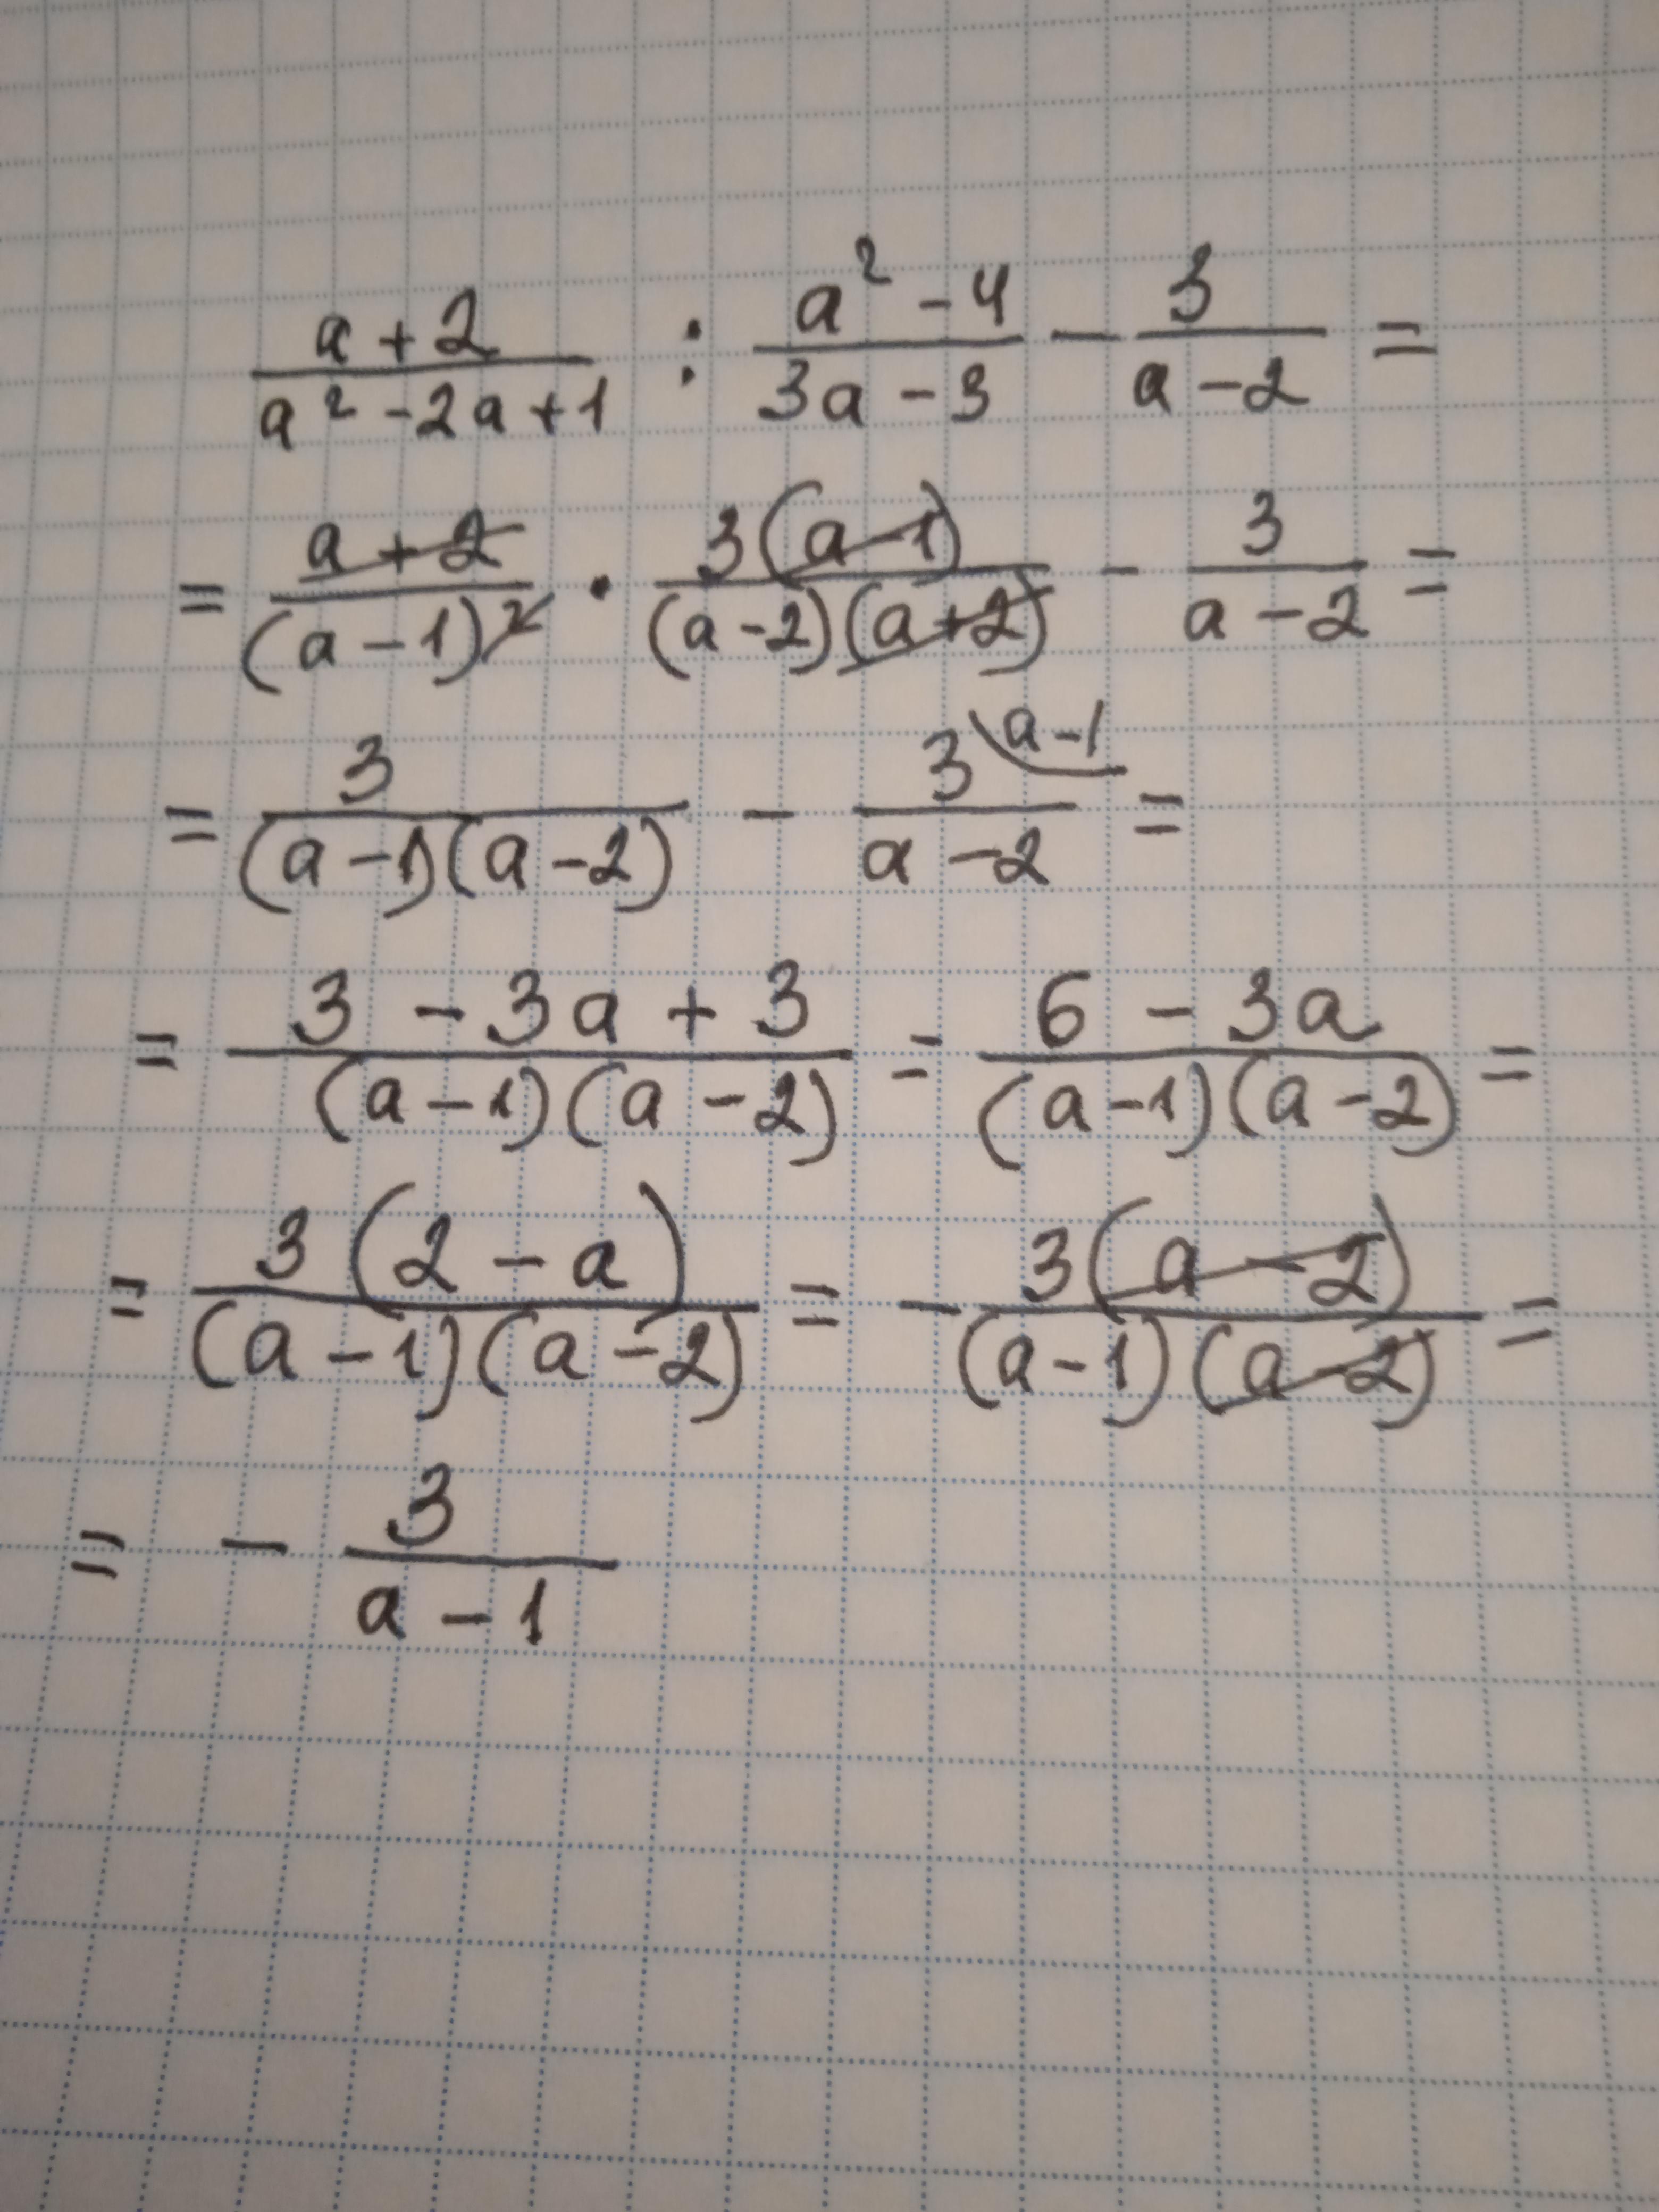 (a+2)/(a²-2a+1) : (a²-4)/(3a-3) - 3/(a-2) =
= (a+2)/(a-1)² · 3(a-1)/((a-2)(a+2)) - 3/(a-2) =
= 3/((a-1)(a-2)) - 3\a-1/(a-2) =
= (3-3a+3)/((a-1)(a-2)) = (6-3a)/((a-1)(a-2)) =
= 3(2-a)/((a-1)(a-2)) = - 3(a-2)/((a-1)(a-2)) =
= - 3/(a-1)